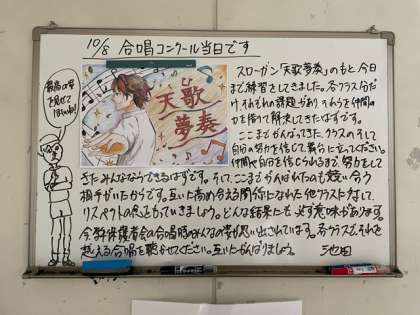 10/8 合唱コンクール当日です
最高の姿
を見せて
天歌
夢奏
スローガン「天歌夢奏」のもと今日
まで練習をしてきました。各クラス分だ
け、それぞれの課題があり それらを仲間の
力を借りて解決してきたはずです。
ここまでがんばってきた、クラスの、そして
自分の努力を信じて舞台に立ってください。
仲間や自分を信じられるまで、努力をして
きたみんなならできるはずです。そして、ここまでがんばれたのも競い合う
相手がいたからです。互いに高め合える関係になれた他クラスに対して、
リスペクトの気もちでいきましょう。どんな結果にも必ず意味があります。
合唱時のみんなの姿が思い出されています。各クラス、それを
超える合唱を聴かせてください。互いにがんばりましょう。 池田